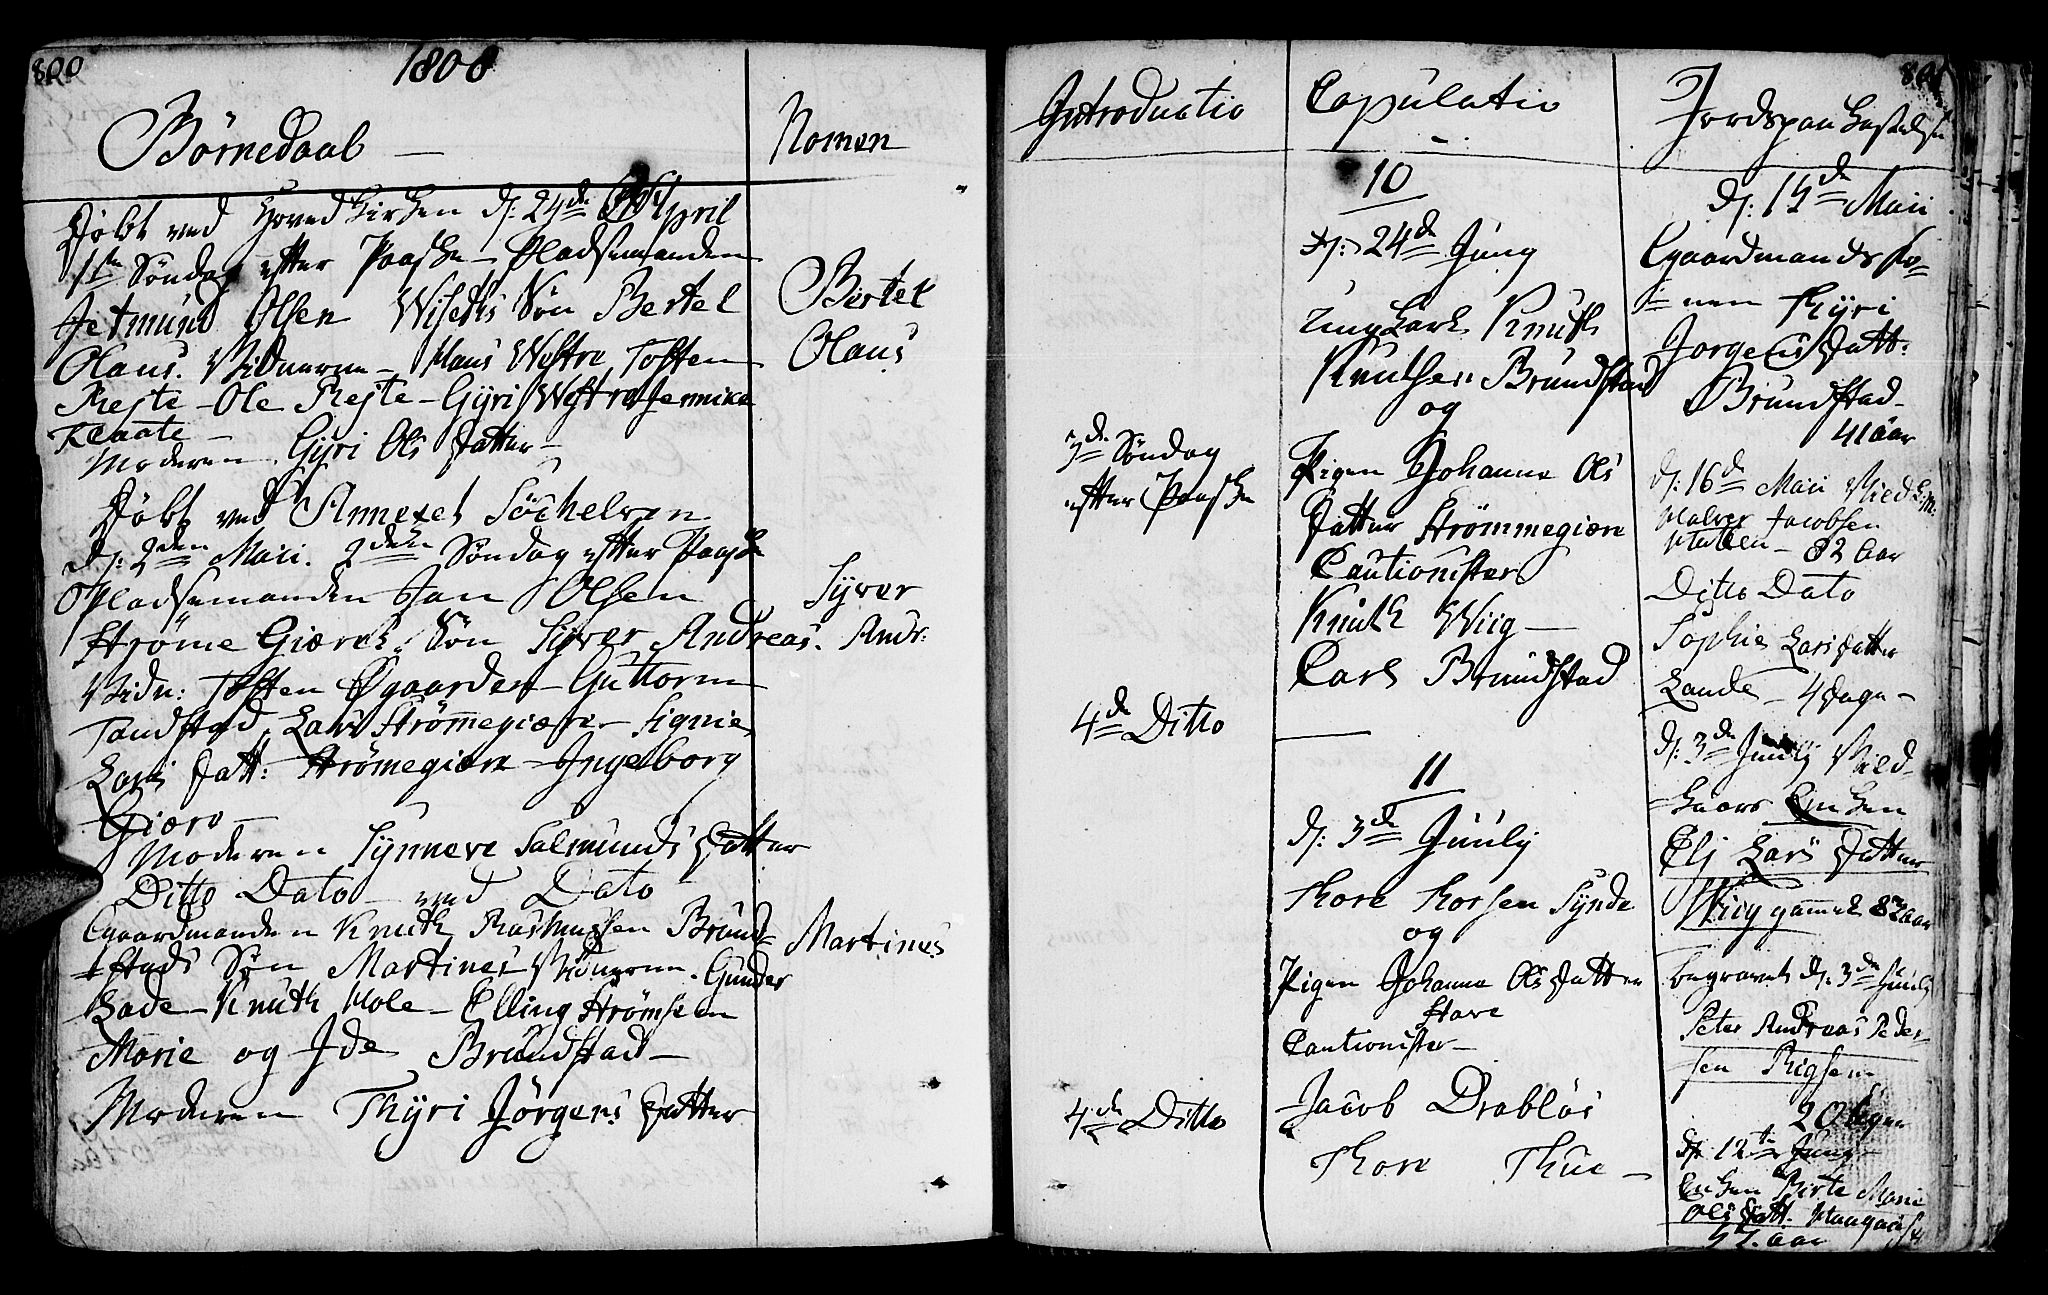 800
1808
Børnedaab —
Nomen
Døbt ved Hovedkirken d: 24de April
1ste Søndag efter Paaske – Pladsemanden
Jetmund Olsen Wiseths Søn Bertel
Olaus. Vidnerne – Hans Westre Tosten
Rejte – Ole Rejte – Gyri Westre Jennike
Klaate –
Moderen Gyri Ols Datter –
Bertel
Olaus
Døbt ved Annexet Søchelven
d: 2den Maii. 2den Søndag efter Paaske
Pladsemanden Jan Olsen
Strøme Giærets Søn Syver Andreas.
Vidn: Tosten Øgaarden – Guttorm
Tandstad Lars Strømmegiære – Signie
Lars Datt: Strømegiære – Ingeborg
Giære –
Moderen Synneve Salmunds Datter
Syver
Andr:
Ditto Dato – ved Dato
Gaardmanden Knuth Rasmussen Brund-
stads Søn Martines Vidnerne. Gunder
Lade – Knuth Hole – Elling Strømseen
Marie og Ide Brundstad –
Moderen Thyri Jørgens Datter
Martines
801
Introductio
3de Søndag
efter Paaske
4de Ditto
4de Ditto
Copulatio
10
d: 24de Juny
Ungkarl Knuth
Knutsen Brundstad
og
Pigen Johanne Ols
Datter Strømmegiære
Cautionister
Knuth Wiig —
Carl Brundstad
11
d: 3de July
Thore Thorsen Synde
og
Pigen Johanne Ols Datter
Stave
Cautionister –
Jacob Drabløs
Thore Thue –
Jordspaakastelse
d: 15de Maii
Gaardmands Ko-
nen Thyri
Jørgens Datt:
Brundstad –
41 aar
d: 16de Maii
Halver Jacobsen
– 82 Aar
Ditto Dato
Sophie Lars Datter
Lande – 4 Dage –
d: 3de July
Enken
Elj Lars Datter
Wiig gammel 82 Aar
begravet d: 3de July
Peter Andreas Peder-
sen
20 Uger
d: 12te Juny –
Enken Birte Marie
Ols Datt.
57. aar